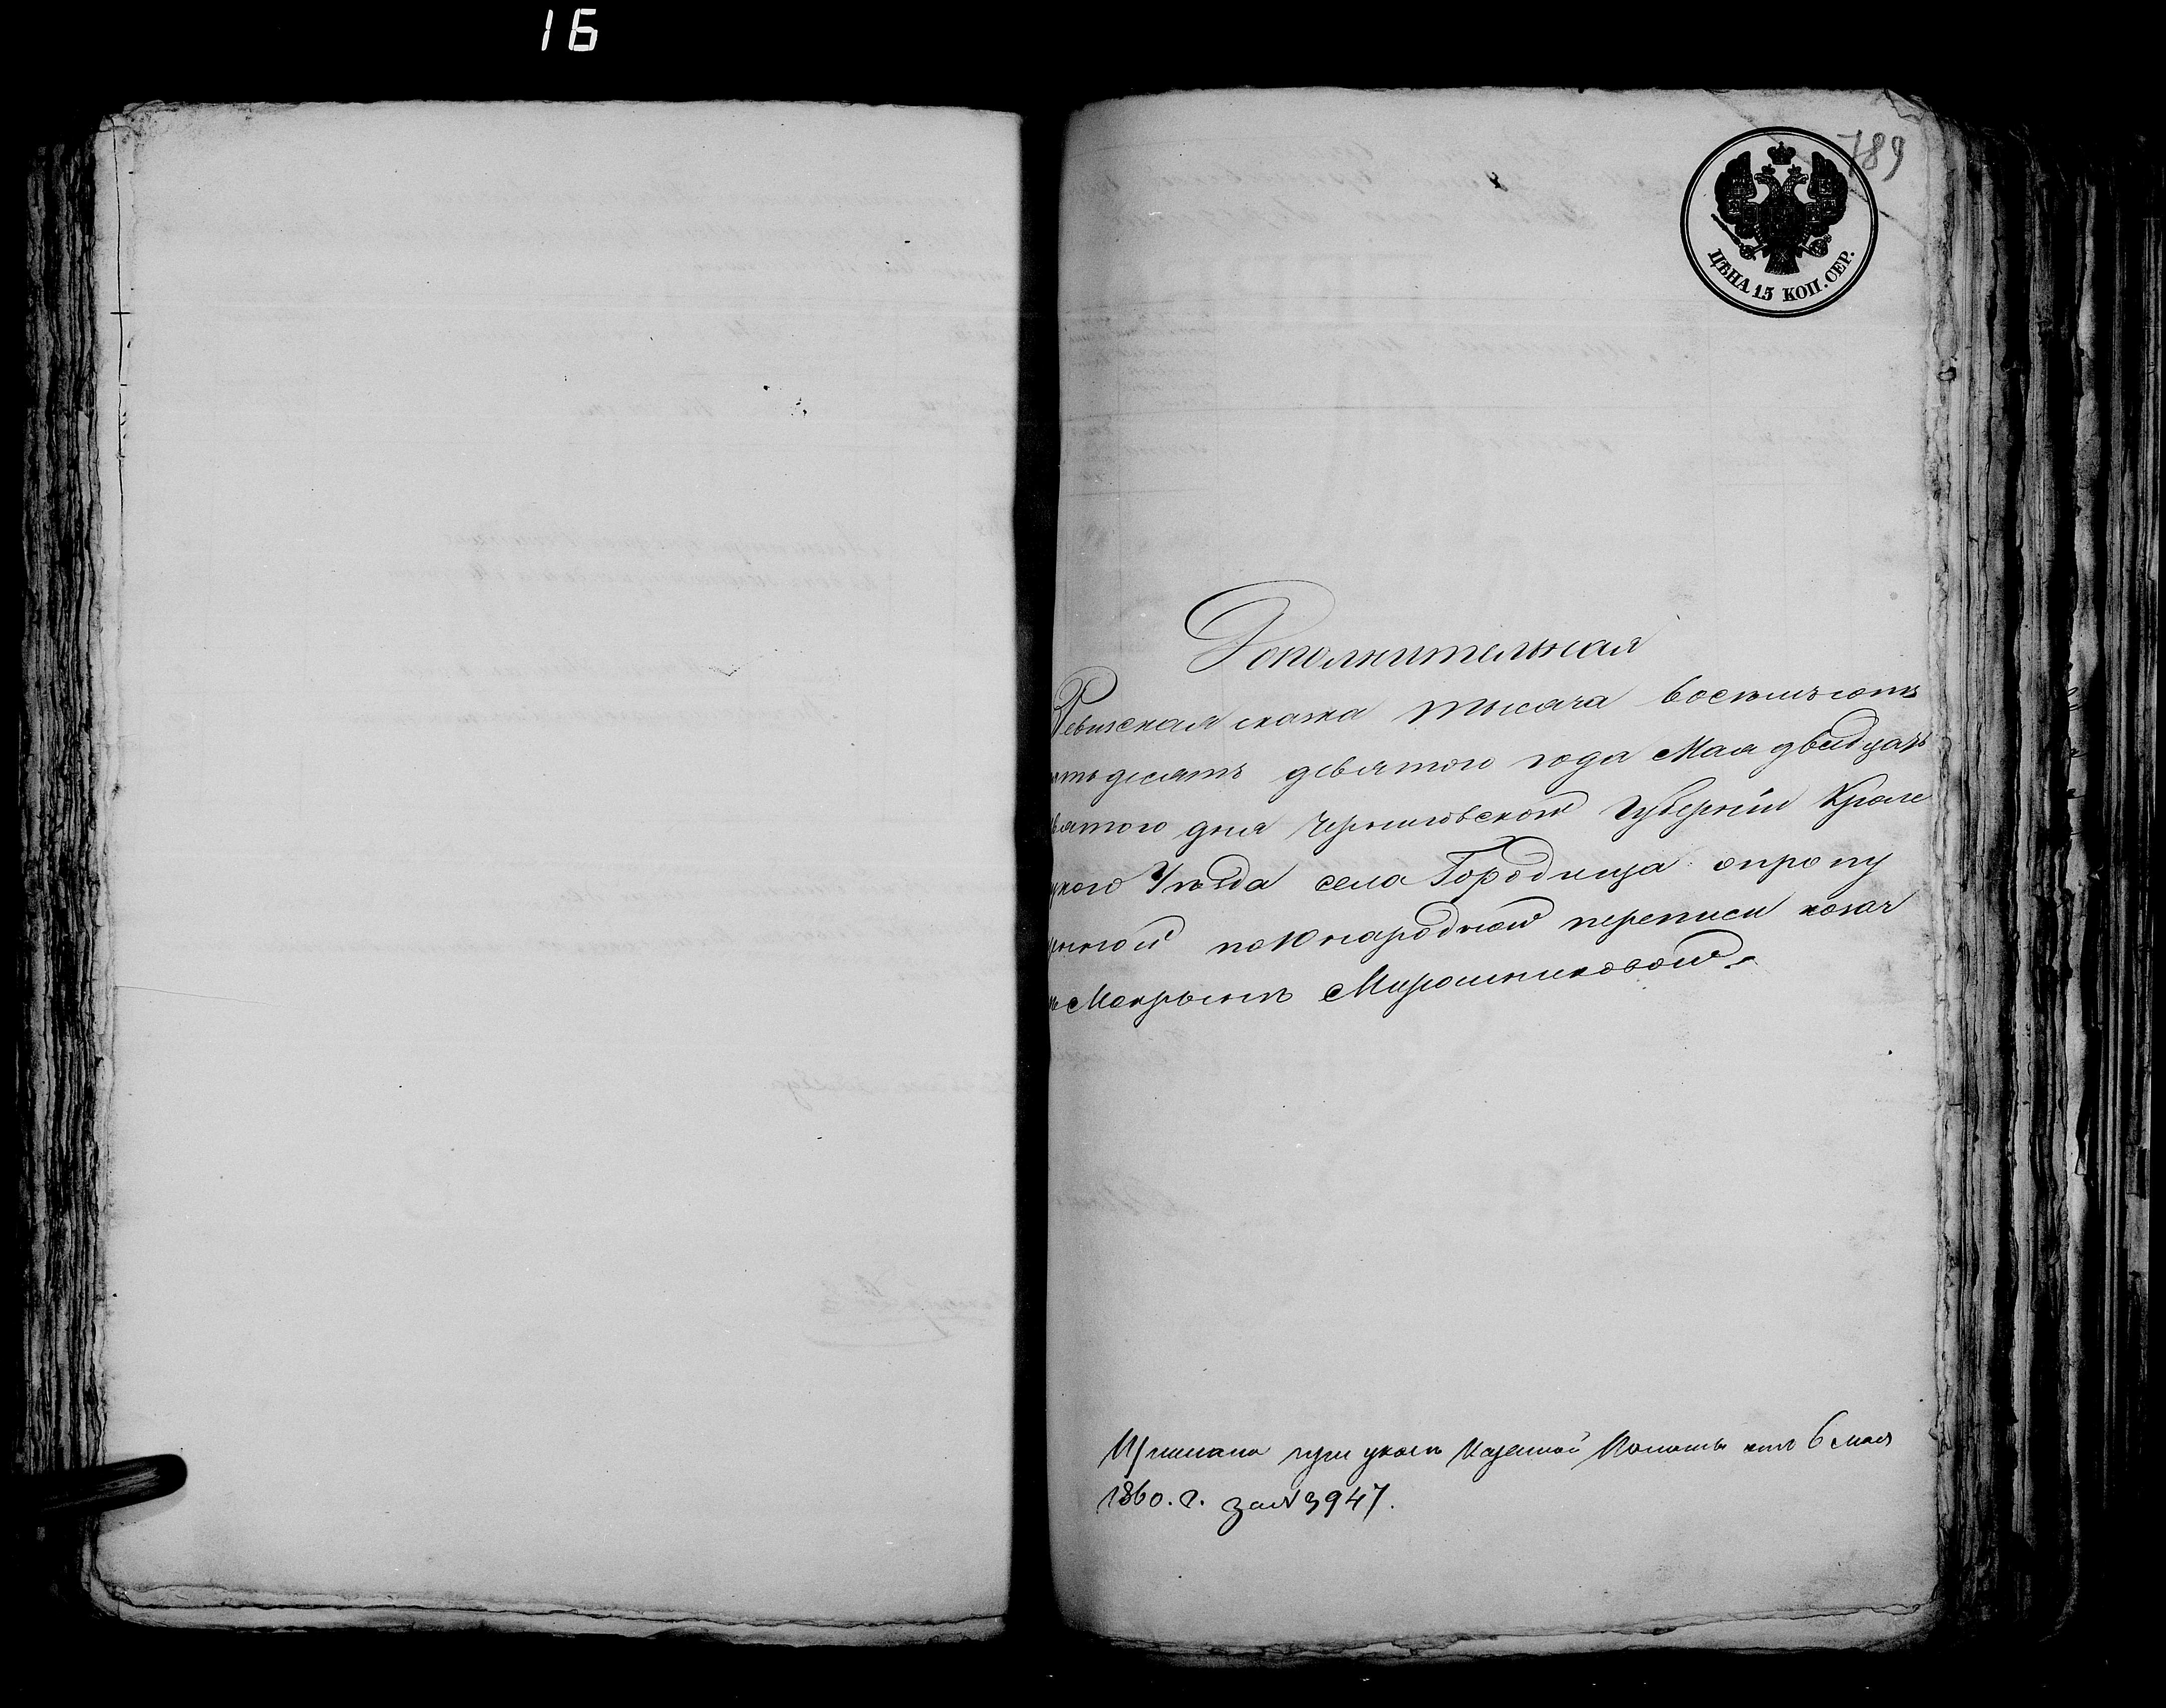 16
789
ЦѢНА 15 КОП. СЕР.
Дополнительная
Ревизская сказка тысяча восемьсотъ
ятьдесятъ девятого года Мая двадцать
вятого дня Черниговской Губерніи Кроле
цкого Уѣзда села Городища опропу
щенной по 10 народной переписи козач
кѣ Мокрынѣ Мирошниковой.
Прислана при указѣ Казенной Палаты отъ 6 мая
1860. г. за № 3947.